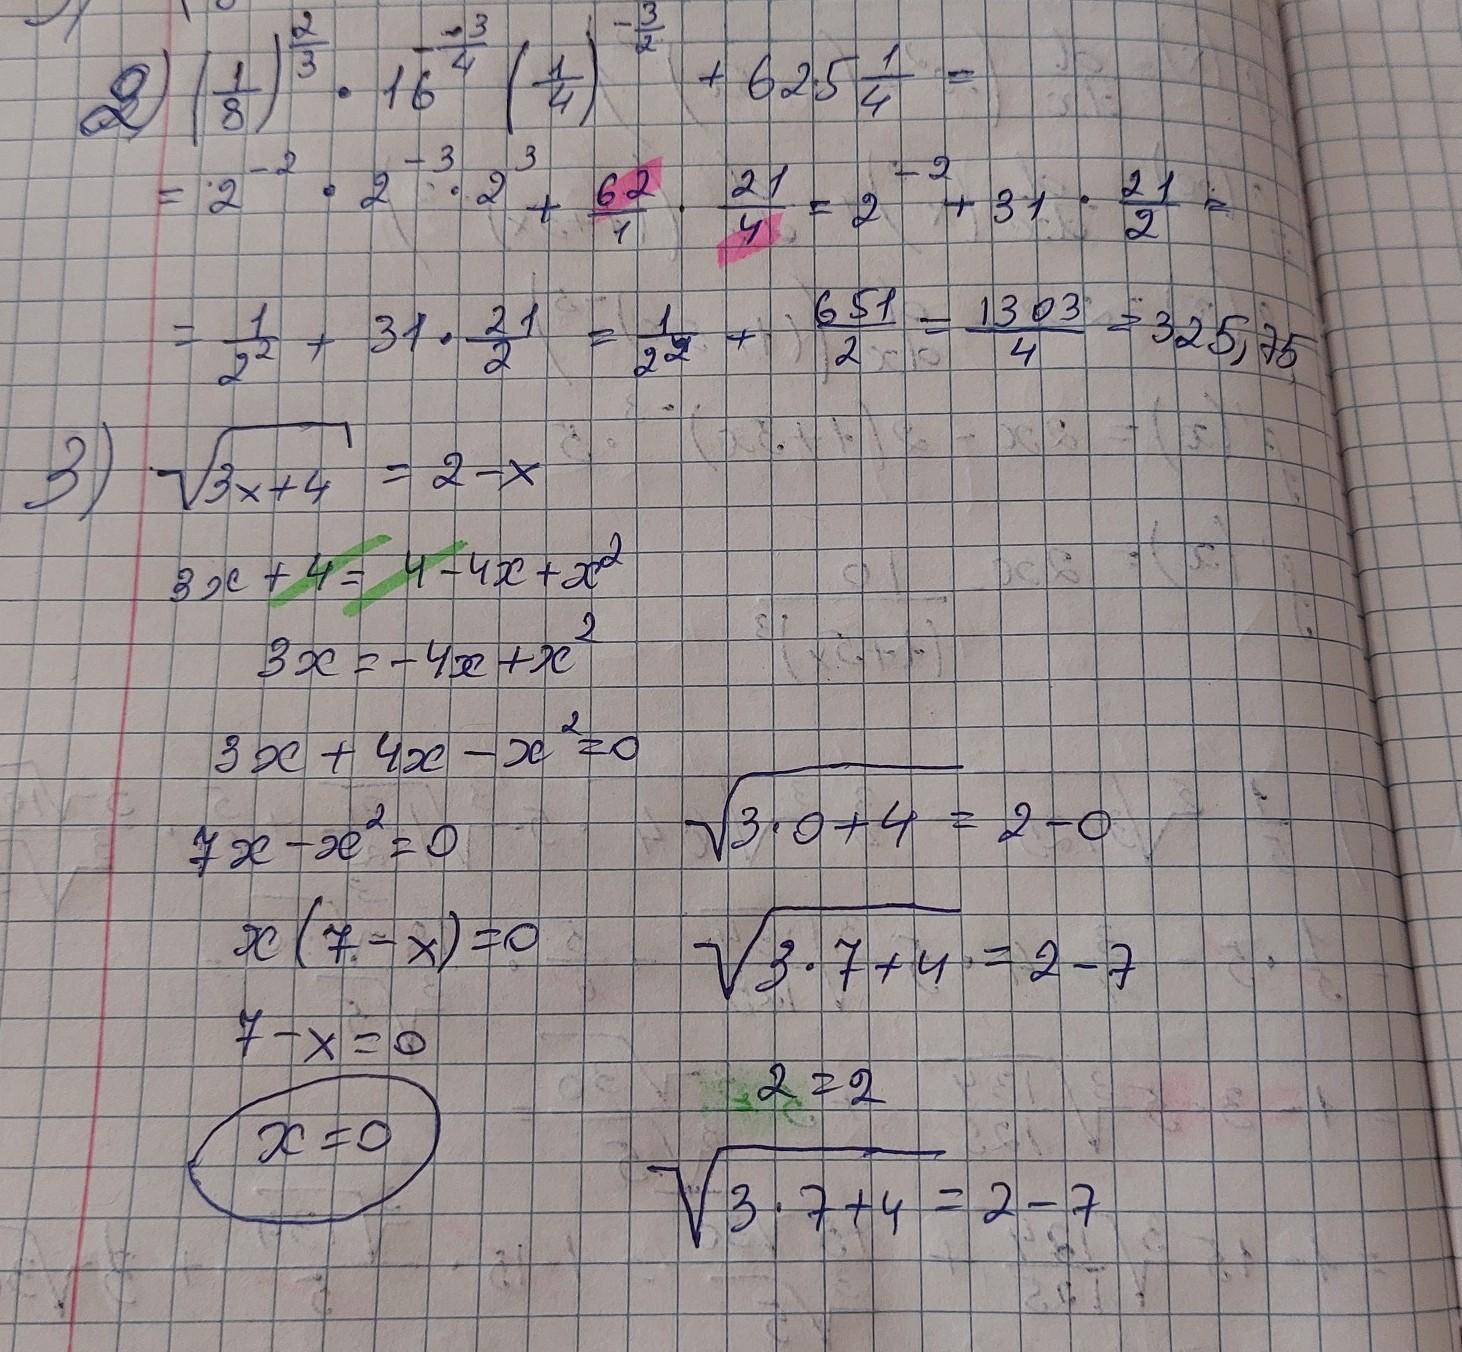 2) (1/8)^(2/3) · 16^(-3/4) (1/4)^(-3/2) + 625 1/4 =
= 2^(-2) · 2^(-3) · 2^3 + 62/1 · 21/4 = 2^(-2) + 31 · 21/2 =
= 1/2^2 + 31 · 21/2 = 1/2^2 + 651/2 = 1303/4 = 325,75
3) √(3x+4) = 2-x
3x+4 = 4-4x+x^2
3x = -4x+x^2
3x + 4x - x^2 = 0
7x - x^2 = 0
x(7-x) = 0
7-x = 0
x = 0
√(3·0+4) = 2-0
√(3·7+4) = 2-7
2 = 2
√(3·7+4) = 2-7